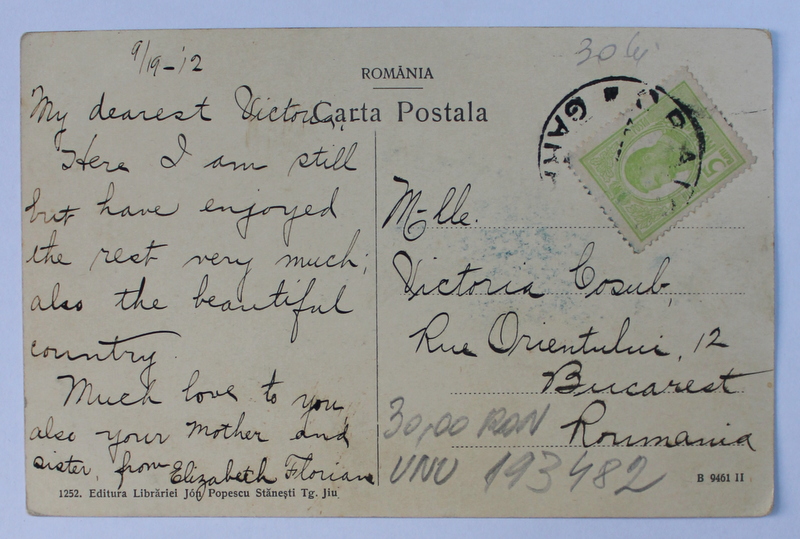 9/19-'12
30 lei
ROMÂNIA
Carta Postala
My dearest Victoria,
Here I am still
but have enjoyed
the rest very much;
also the beautiful
country.
Much love to you
also your Mother and
sister, from Elizabeth Florian
M-lle.
Victoria Cosub,
Rue Orientului, 12
Bucarest
Roumania
30,00 RON
VNU 193482
GARA
5
1252. Editura Librăriei Jón Popescu Stănești Tg. Jiu
B 9461 II